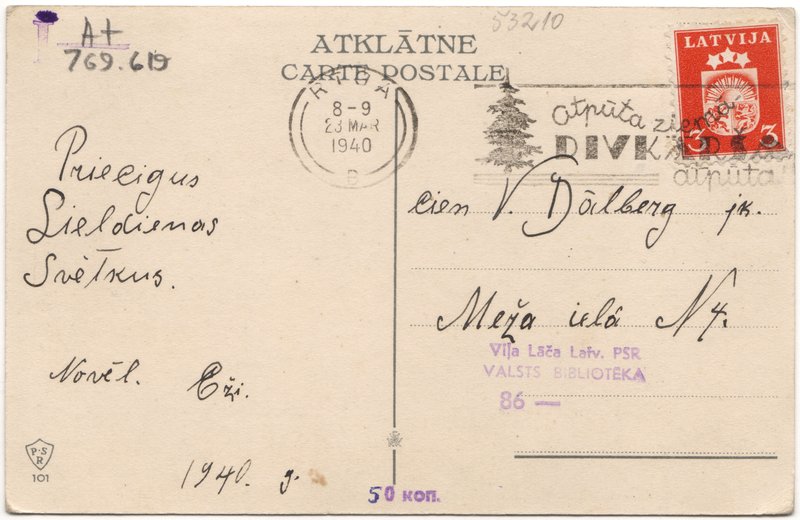 53210
A+
769.619
ATKLĀTNE
CARTE POSTALE
RĪGA
8-9
23 MAR
1940
B
atpūta ziemā -
DIVKĀRŠA
atpūta!
LATVIJA
3 3
Priecigus
Lieldienas
Svētkus.
Novēl. Eži.
1940. g.
cien V. Dālberg jk.
Meža ielā N4.
Viļa Lāča Latv. PSR
VALSTS BIBLIOTĒKA
86 —
P.S
R
101
50 коп.